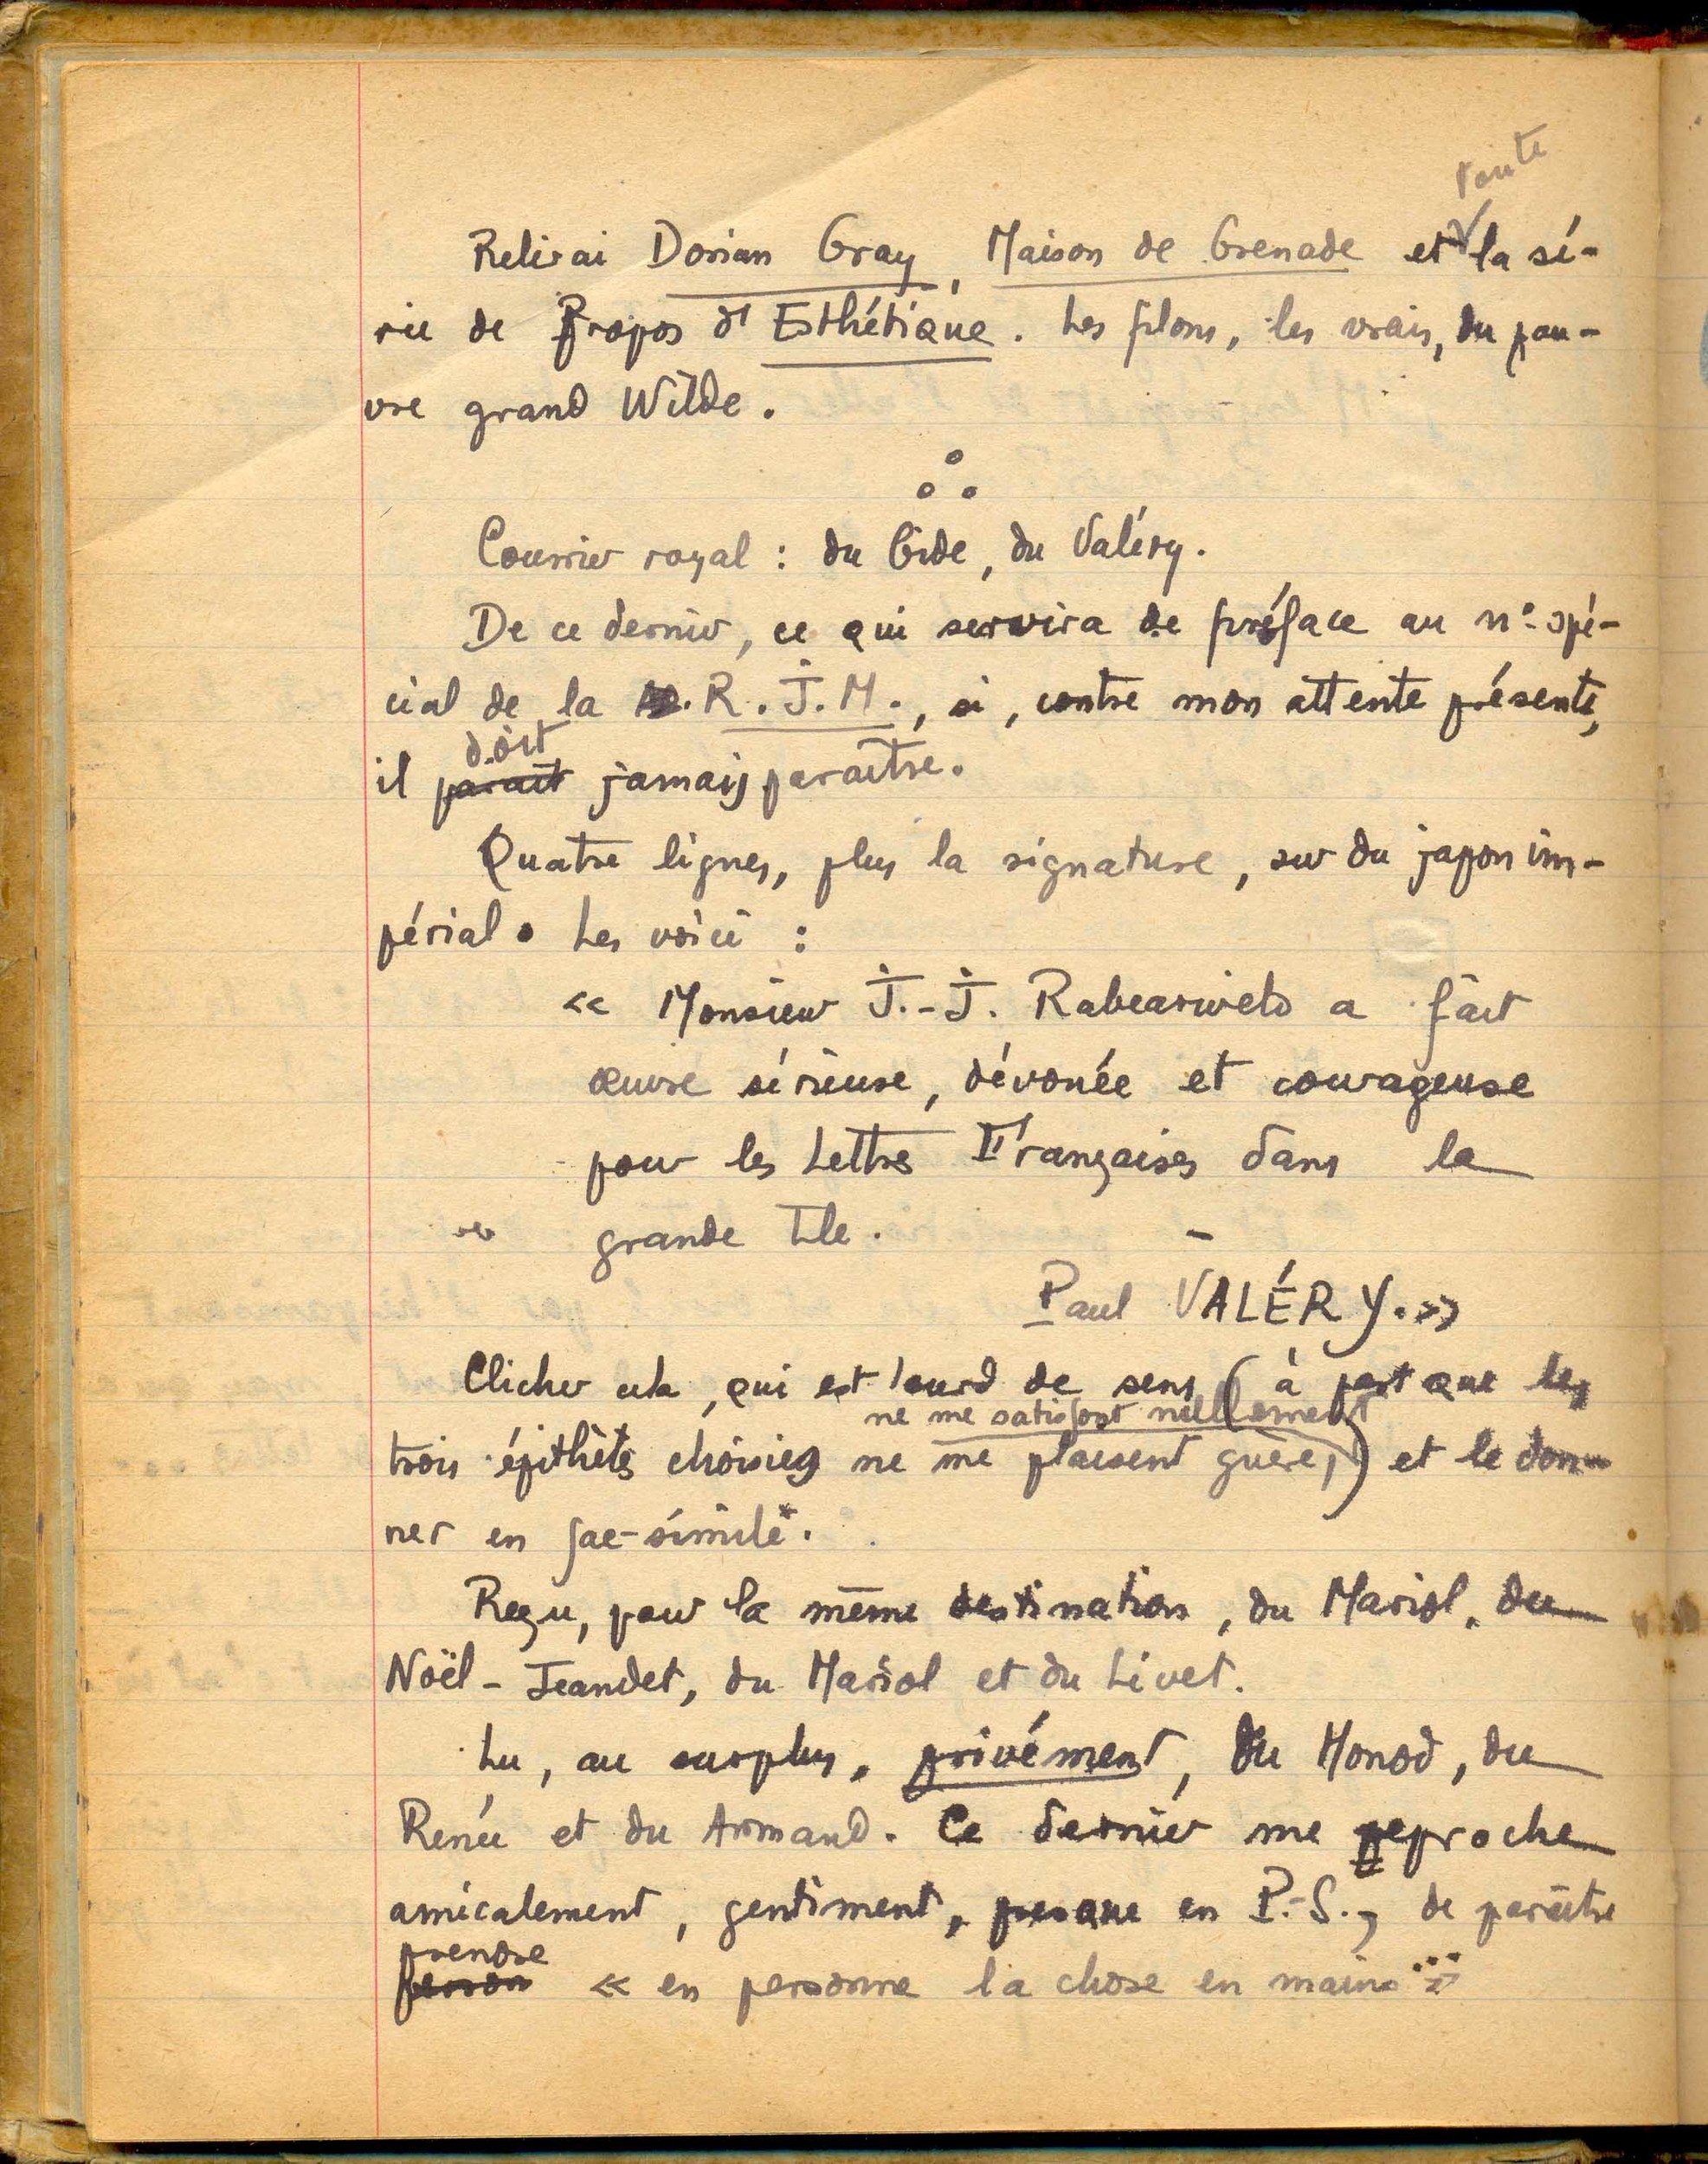 toute
Relirai Dorian Gray, Maison de Grenade et la sé-
rie de Propos d'Esthétique. Les filons, les vrais, du pau-
vre grand Wilde.
Courrier royal : du Gide, du Valéry.
De ce dernier, ce qui servira de préface au n° spé-
cial de la R.J.M., si, contre mon attente présente,
doit
il paraît jamais paraître.
Quatre lignes, plus la signature, sur du japon im-
périal. Les voici :
« Monsieur J.-J. Rabearivelo a fait
œuvre sérieuse, dévouée et courageuse
pour les Lettres Françaises dans la
grande Ile.
Paul VALÉRY. »
Clicher cela, qui est lourd de sens (à part que les
ne me satisfont nullement
trois épithètes choisies ne me plaisent guère,) et le don-
ner en fac-similé.
Reçu, pour la même destination, du Mariol, du
Noël-Jeandet, du Mariol et du Livet.
Lu, au surplus, privément, du Monod, du
Renée et du Armand. Ce dernier me reproche
amicalement, gentiment, presque en P.-S., de paraître
prendre
person « en personne la chose en mains... »